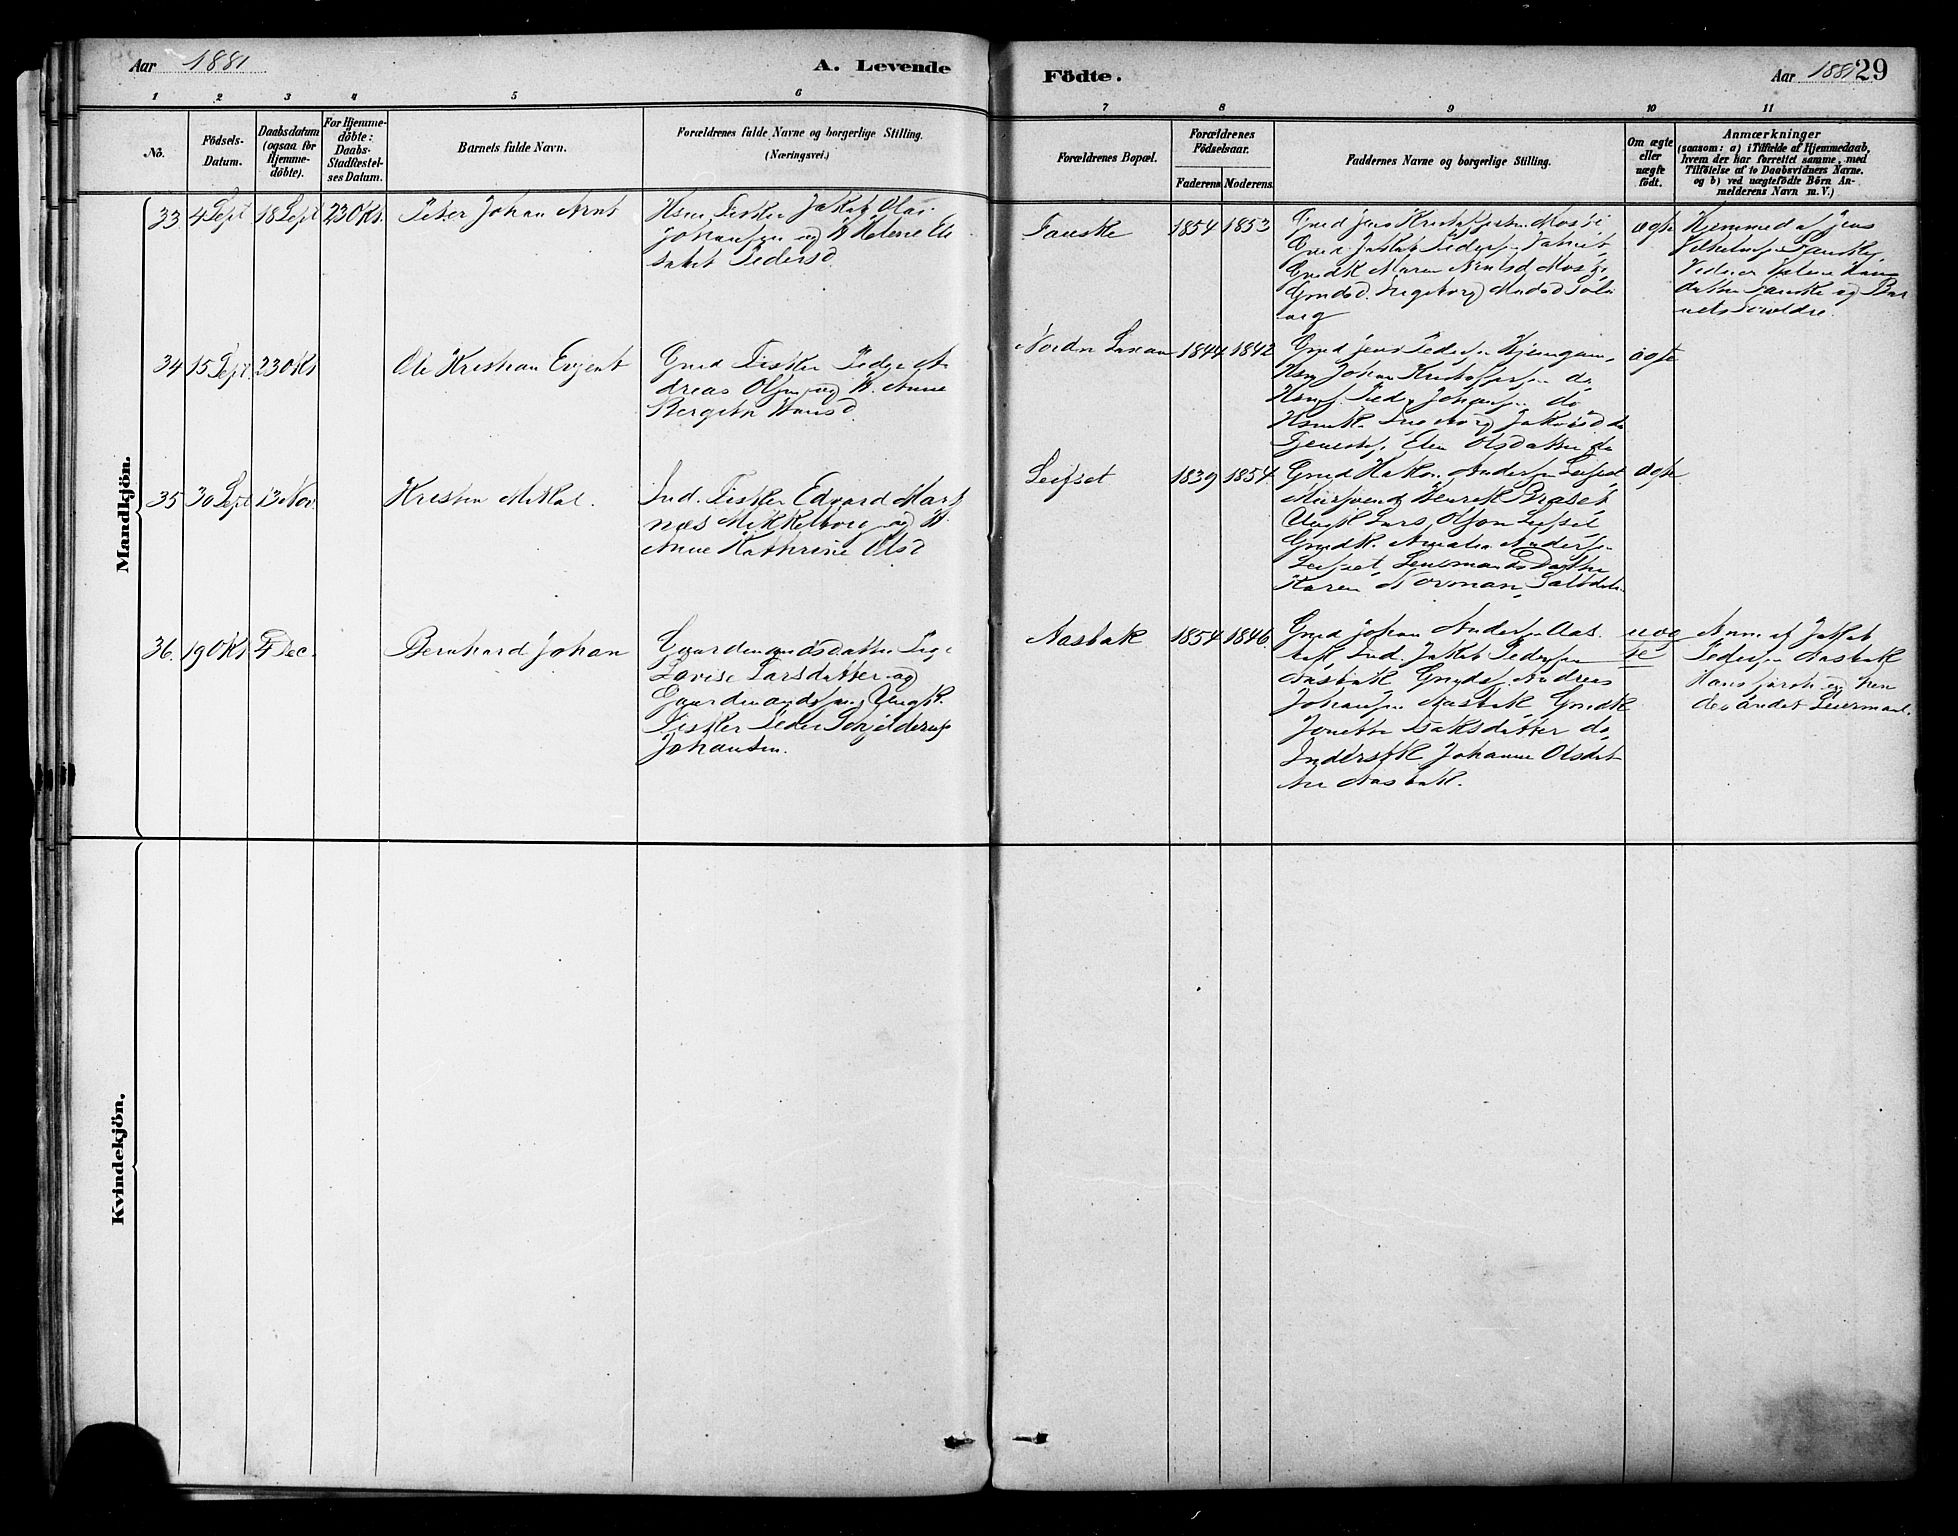 Aar 1881
A. Levende
Födte.
Aar 1881 29
1 2 3 4 5 6 7 8 9 10 11
No.
Födsels-
Datum.
Daabsdatum
(ogsaa for
Hjemme-
döbte).
For Hjemme-
döbte:
Daabs-
Stadfæstel-
ses Datum.
Barnets fulde Navn.
Forældrenes fulde Navne og borgerlige Stilling.
(Næringsvei.)
Forældrenes Bopæl.
Forældrenes
Födselsaar.
Faderens Moderens
Faddernes Navne og borgerlige Stilling.
Om ægte
eller
uægte
födt.
Anmærkninger
(saasom: a) i Tilfælde af Hjemmedaab,
hvem der har forrettet samme, med
Tilföielse af to Daabsvidners Navne.
og b) ved uægtefödte Börn An-
melderens Navn m. V.)
Mandkjön.
33 4 Sept 18 Sept 23 Okt. Peter Johan Arnt
Hsm. Fisker Jakob Olai
Johansen og H. Helene Eli
sabet Pedersd.
Fauske 1854 1853
Gmd Jens Kristoffersen Moski
Gmd. Jakob Pedersen
Gmdk Maren Arntsd Moski
Gmdsd. Ingeborg Madsd
ægte
Hjemmed af Jens
Fauske,
Vidner
datter Fauske og Bar
nets Foreldre.
34 15 Sept. 23 Okt Ole Kristian Evjent
Gmd Fisker Peder A
dreas Olsen og H. Anne
Bergitte Hansd
Nordre 1844 1842
Gmd Jens Pedersen
Hsm Johan Kristoffersen do.
Peder Johansen do
Hsmk. Jakobsd do
Elen Olsdatter do
ægte
35 30 Sept 13 Nov. Kristen Mikal.
Ind. Fisker Edvard Mart
næs Mikkelborg og H.
Anne Kathrine Olsd
Leifset 1839 1854
Gmd Hakon Andersen Leifset
Henrik
Ungk Lars Olsen Leifset
Gmdk. Amalia Andersen
Leifset, Lensmands Datter
Karen Norman, Saltdalen
ægte
36. 19 Okt 4 Dec. Bernhard Johan
Gaardmandsdatter Pige
Lovise Larsdatter og
Gaardmandssøn Ungk.
Fisker Peder Schjelderup
Johansen.
Aasbak 1854 1846.
Gmd Johan Andersen Aas
bak Ind. Jakob Pedersen
Aasbak Gmds. Andreas
Johansen Aasbak Gmdk
Jonette Isaksdatter do.
Inderstk Johanne Olsdat
ter Aasbak.
uæg
te
Anm. af Jakob
Pedersen Aasbak
Hans første og hen
des andet Leiermaal.
Kvindekjön.